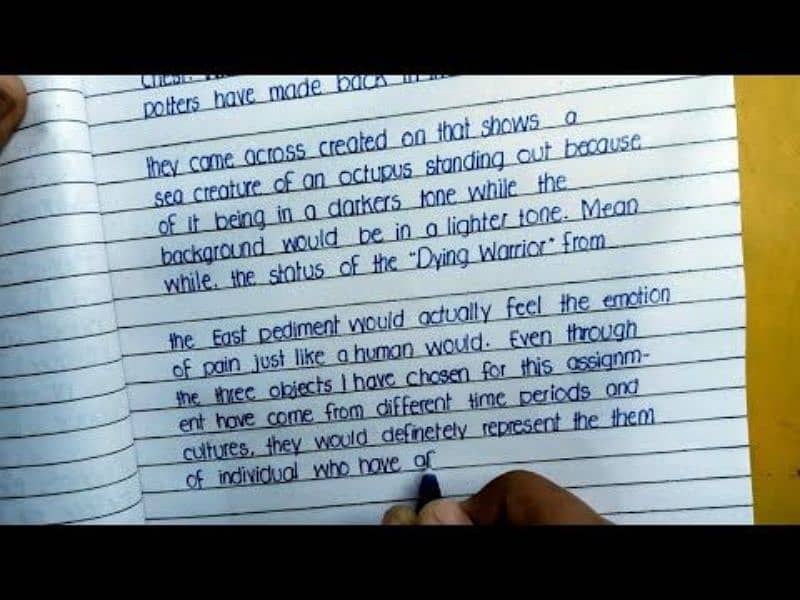 potters have made back in
they came across created on that shows a
sea creature of an octupus standing out because
of it being in a darkers tone while the
background would be in a lighter tone. Mean
while, the status of the "Dying Warrior" from
the East pediment would actually feel the emotion
of pain just like a human would. Even through
the three objects I have chosen for this assignm-
ent have come from different time periods and
cultures, they would definetely represent the them
of individual who have